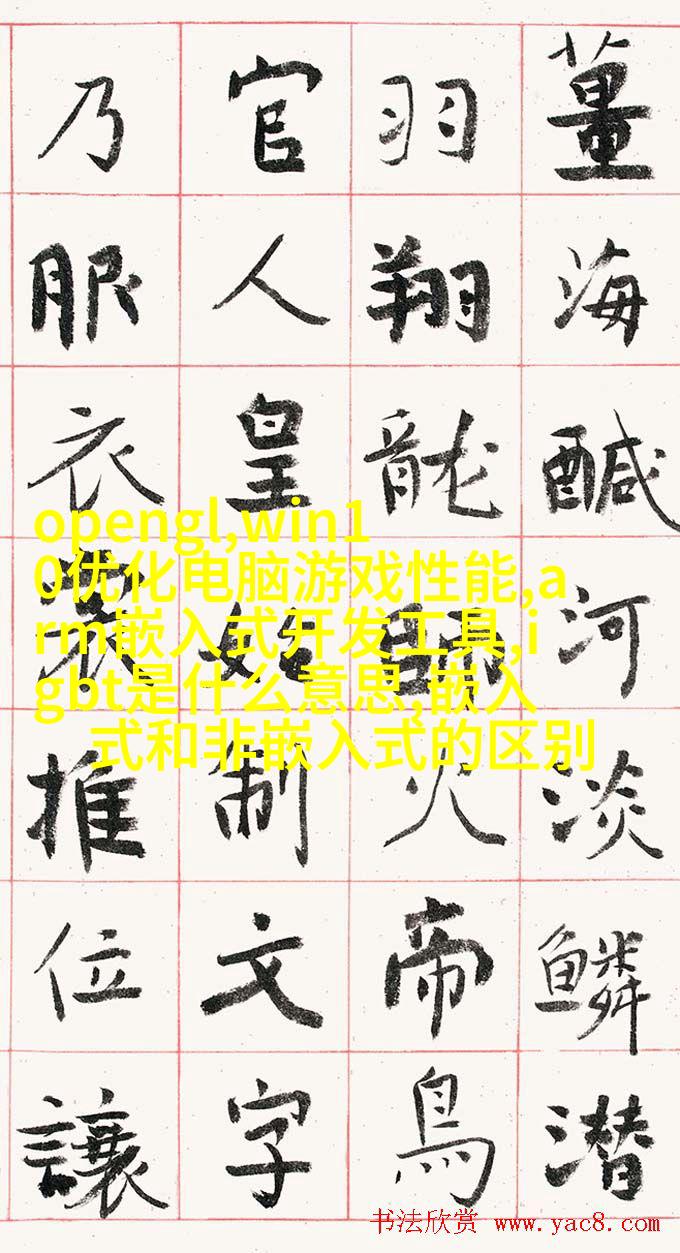 薑海醎河淡鳞潜
羽翔龍師火帝鳥
官人皇始制文字
乃服衣裳推位讓
opengl,win1
0优化电脑游戏性能,a
rm嵌入式开发工具,i
gbt是什么意思,嵌入
式和非嵌入式的区别
书法欣赏 www.yac8.com